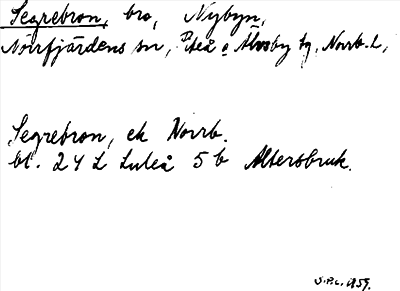 Segrebron, bro, Nybyn,
Norrfjärdens sn, Piteå o Älvsby tg, Norrb. l,
Segrebron, ek Norrb.
bl. 24 L Luleå 5 b Altersbruk.
S.P.L. 1959.